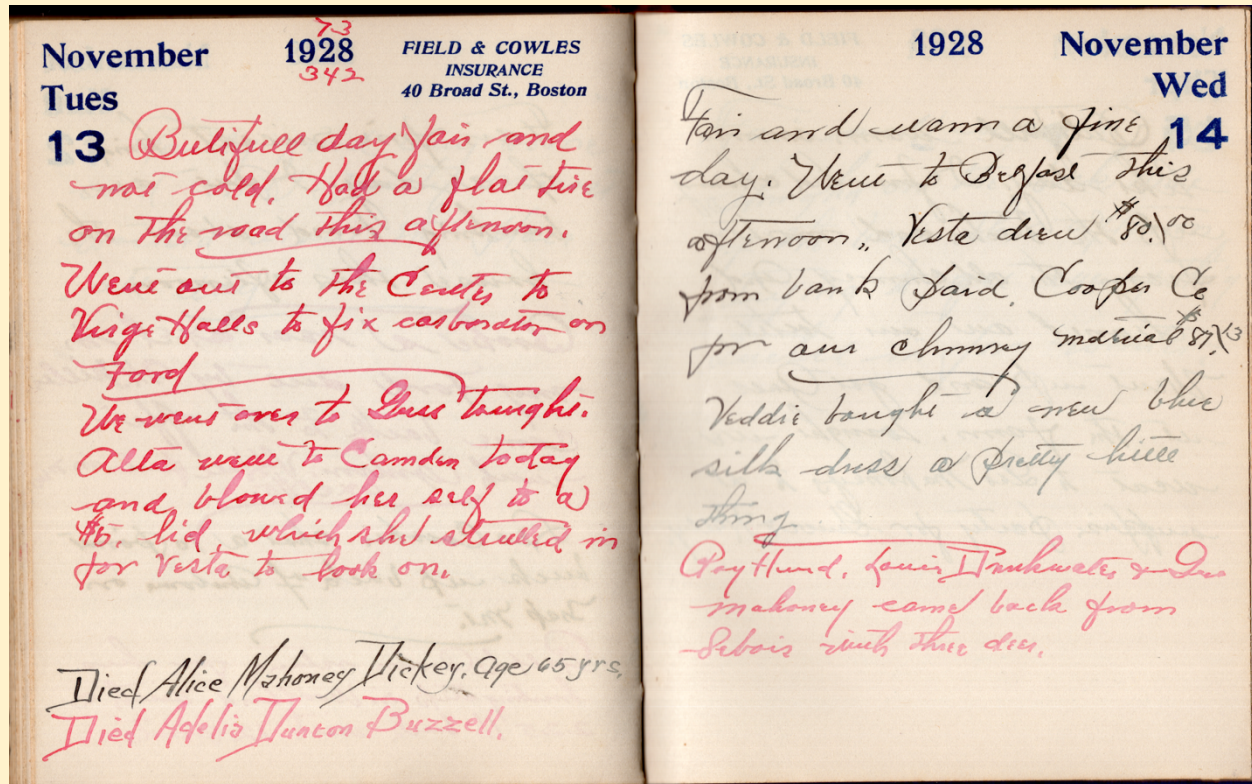 73
November 1928 FIELD & COWLES
342 INSURANCE
Tues 40 Broad St., Boston
13 Butifull day fair and
not cold. Had a flat tire
on the road this afternoon.
Went out to the Center to
Virge Halls to fix carborator on
Ford
We went over to Guss tonight.
Alta went to Camden today
and blowed her self to a
$5. lid, which she strutted in
for Vesta to look on.
Died Alice Mahoney Dickey. Age 65 yrs.
Died Adelia Dunton Buzzell.
1928 November
Wed
14
Fair and warm a fine
day. Went to Belfast this
afternoon,, Vesta drew $80.00
from bank paid. Cooper Co
for our chimney material $87.13
Veddie bought a new blue
silk dress a pretty little
thing
Roy Hurd, Louis Drinkwater & Gus
mahoney came back from
Sebois with three deer.